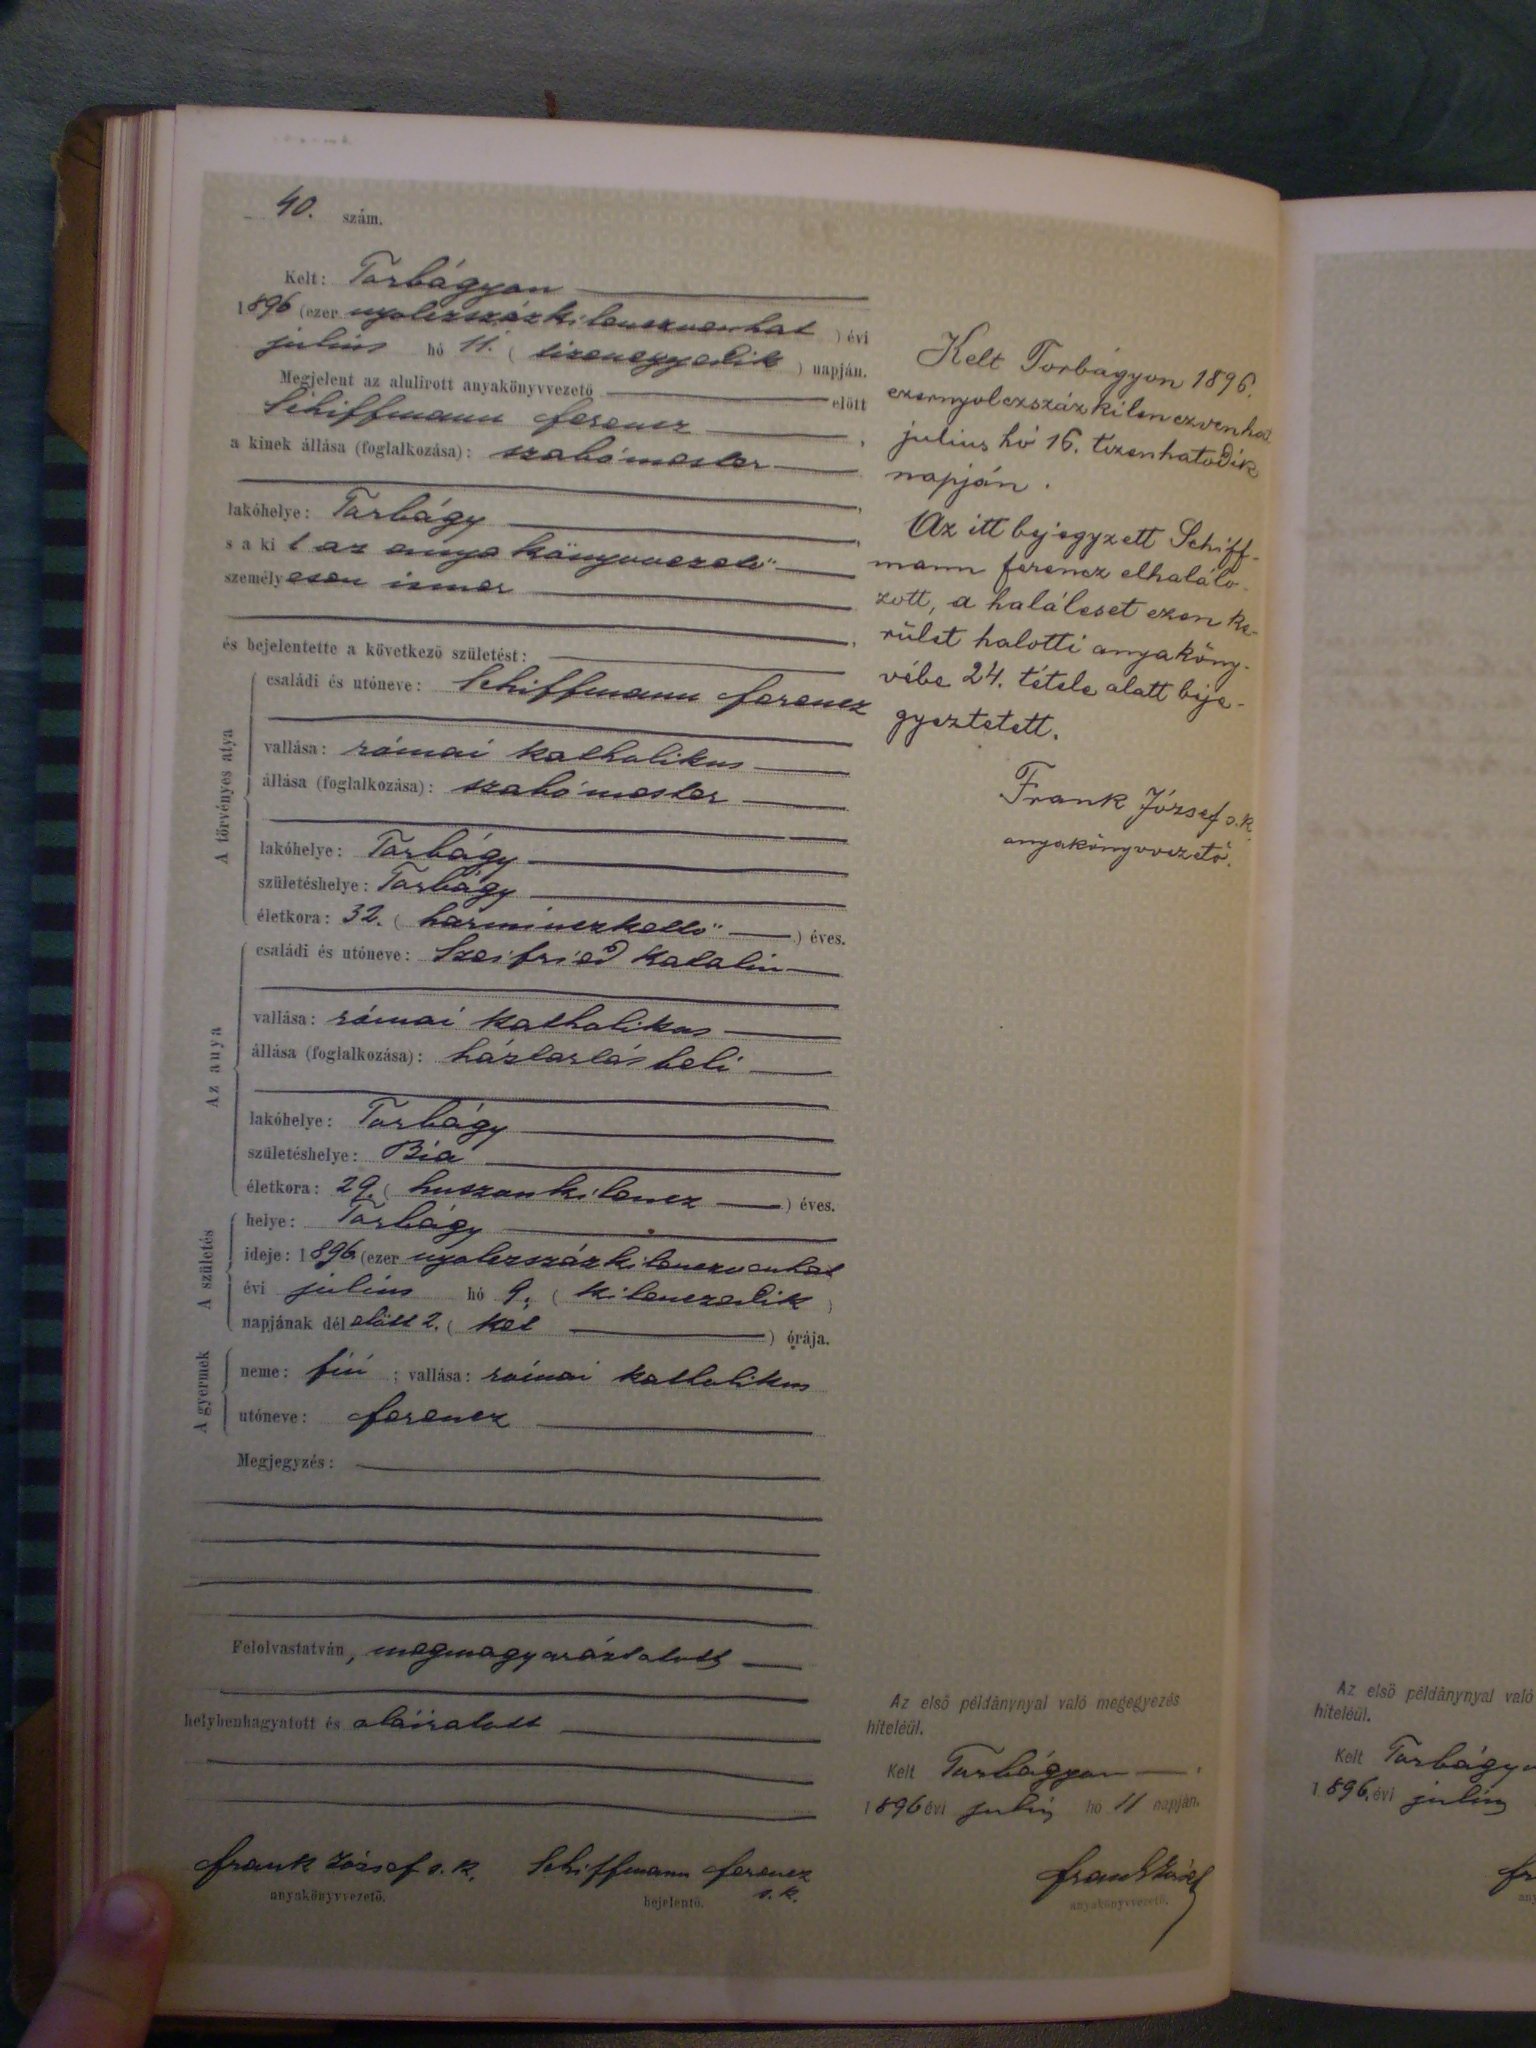 40. szám.
Kelt: Torbágyon
1896 (ezer nyolczszázkilenczvenhat) évi
július hó 11. (tizenegyedik) napján.
Megjelent az alulirott anyakönyvvezető előtt
Schiffmann Ferencz,
a kinek állása (foglalkozása): szabómester
lakóhelye: Torbágy,
s a kit az anyakönyvvezető
személyesen ismer
és bejelentette a következő születést:
A törvényes atya
családi és utóneve: Schiffmann Ferencz
vallása: római katholikus
állása (foglalkozása): szabómester
lakóhelye: Torbágy
születéshelye: Torbágy
életkora: 32. (harminczkettő) éves.
Az anya
családi és utóneve: Szeifried Katalin
vallása: római katholikus
állása (foglalkozása): háztartásbeli
lakóhelye: Torbágy
születéshelye: Bia
életkora: 29. (huszonkilencz) éves.
A születés
helye: Torbágy
ideje: 1896 (ezer nyolczszázkilenczvenhat
évi július hó 9. (kilenczedik)
napjának délelőtt 2. (két) órája.
A gyermek
neme: fiú; vallása: római katholikus
utóneve: Ferencz
Megjegyzés:
Felolvastatván, megmagyaráztatott
helybenhagyatott és aláiratott
Frank József s. k. Schiffmann Ferencz
s. k.
anyakönyvvezető. bejelentő.
Kelt Torbágyon 1896.
ezernyolczszázkilenczvenhat
julius hó 16. tizenhatodik
napján.
Az itt bejegyzett Schiff-
mann Ferencz elhaláló-
zott, a haláleset ezen ke-
rület halotti anyaköny-
vébe 24. tétele alatt beje-
gyeztetett.
Frank József s. k.
anyakönyvvezető.
Az első példánynyal való megegyezés
hiteléül.
Kelt Torbágyon,
1896 évi július hó 11 napján.
Frank József
anyakönyvvezető.
Az első példánynyal való
hiteléül.
Kelt Torbágyo
1896. évi július
Fr
any